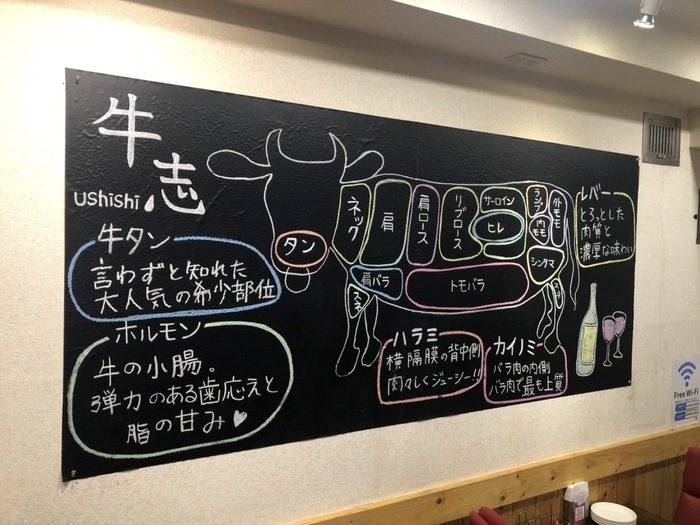 牛志
ushishi
牛タン
言わずと知れた
大人気の希少部位
ホルモン
牛の小腸。
弾力のある歯応えと
脂の甘み
タン
ネック
肩
肩ロース
リブロース
サーロイン
ヒレ
ランプ
内モモ
外モモ
シンタマ
肩バラ
トモバラ
スネ
スネ
ハラミ
横隔膜の背中側
肉々しくジューシー!!
カイノミ
バラ肉の内側
バラ肉で最も上質
レバー
とろっとした
肉質と
濃厚な味わい
Free Wi-Fi